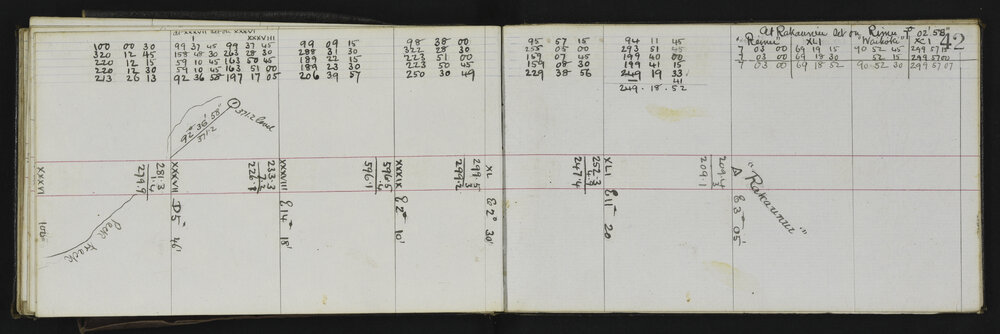 At XXXVII Set on XXXVI
I XXXVIII
100 00 30 99 37 45 99 37 45 99 09 15 98 38 00
320 12 45 158 48 30 263 28 30 288 31 30 322 28 30
220 12 15 59 10 45 163 50 45 189 22 15 223 51 00
220 12 30 59 10 45 163 51 00 189 23 30 223 50 45
213 26 13 92 36 58 197 17 05 206 39 57 250 30 49
95 57 15 94 11 45
255 05 00 293 51 45
159 07 45 199 40 00
159 08 30 199 41 15
229 38 56 249 19 33
41
249.18.52
At Rakaunui Set on Remu 7° 02' 58"
"Remu" XLI "Waikohi" XLI
7 03 00 69 19 15 90 52 45 299 57 15
3 00 69 18 30 52 15 299 57 00
7 03 00 69 18 52 90.52 30 299 57 07
42
92° 36' 58"
371.2
I
371.2
XXXVI
100
Pack Track
281.3
1.4
279.9
XXXVII
D 5° 46'
233.3
XXXVIII
E 14° 18'
596.5
.4
596.1
XXXIX
E 2° 10'
299.5
.3
299.2
XL
E 2° 30'
252.3
247.4
XLI
E 11° 20
209.4
.3
209.1
Δ "Rakaunui"
E 3° 05'